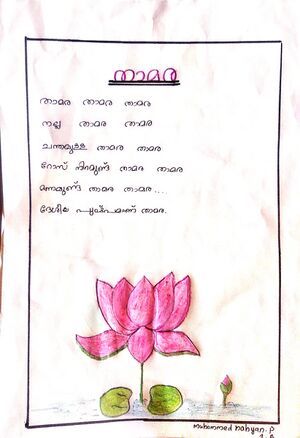 താമര
താമര താമര താമര
നല്ല താമര താമര
ചന്തമുള്ള താമര താമര
റോസ് നിറമുണ്ട് താമര താമര
മണമുണ്ട് താമര താമര....
ദേശീയ പുഷ്പമാണ് താമര.
Muhammed Nahyan. P